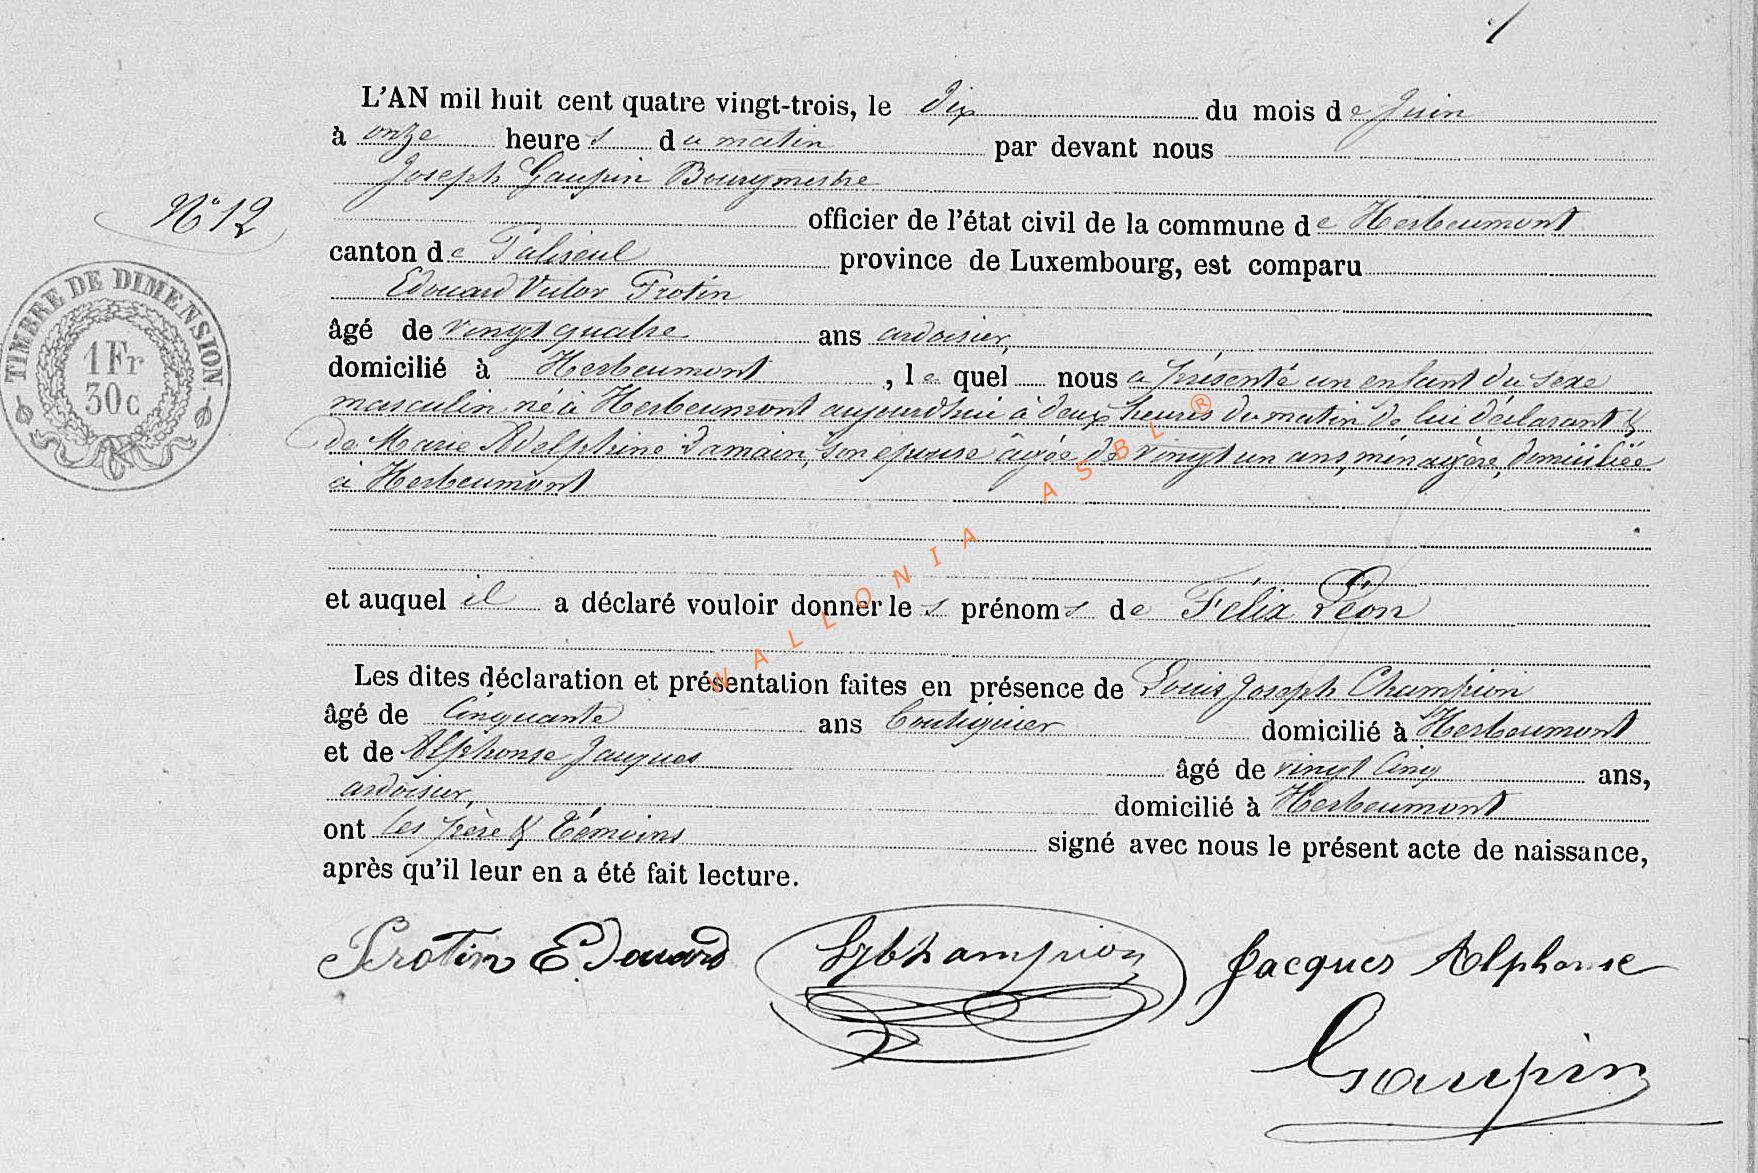 L'AN mil huit cent quatre vingt-trois, le dix du mois de Juin
à onze heures du matin par devant nous
Joseph Gaupin Bourgmestre
N° 12
officier de l'état civil de la commune de Herbeumont
canton de Paliseul province de Luxembourg, est comparu
Edouard Victor Protin
âgé de vingt quatre ans ardoisier,
domicilié à Herbeumont, lequel nous a présenté un enfant du sexe
masculin né à Herbeumont aujourdhui à deux heures du matin de lui déclarant &
de Marie Adelphine Damain, son épouse âgée de vingt un ans, ménagère, domiciliée
à Herbeumont
et auquel il a déclaré vouloir donner les prénoms de Félix Léon
Les dites déclaration et présentation faites en présence de Louis Joseph Champion
âgé de Cinquante ans Boutiquier domicilié à Herbeumont
et de Alphonse Jacques âgé de vingt Cinq ans,
ardoisier, domicilié à Herbeumont
ont les père & Témoins signé avec nous le présent acte de naissance,
après qu'il leur en a été fait lecture.
Protin Edouard Champion Jacques Alphonse
Gaupin
TIMBRE DE DIMENSION
1 Fr
30 c
WALLONIA ASBL ®